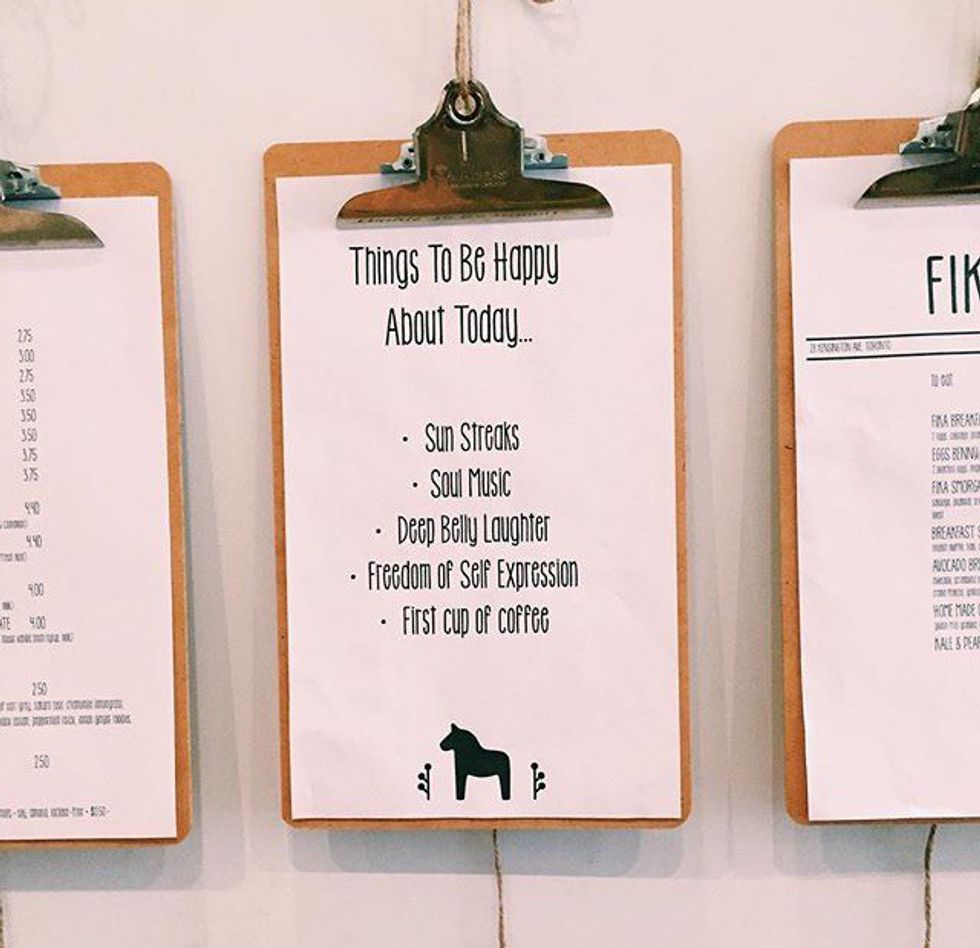 2.75
3.00
2.75
3.50
3.50
3.50
3.75
3.75
4.40
4.40
4.00
4.00
2.50
2.50
Things To Be Happy
About Today...
· Sun Streaks
· Soul Music
· Deep Belly Laughter
· Freedom of Self Expression
· First cup of coffee
FIK
28 KENSINGTON AVE, TORONTO
TO EAT
FIKA BREAKF
EGGS BENNY
FIKA SMORGA
BREAKFAST S
AVOCADO BR
HOME MADE
KALE & PEAR